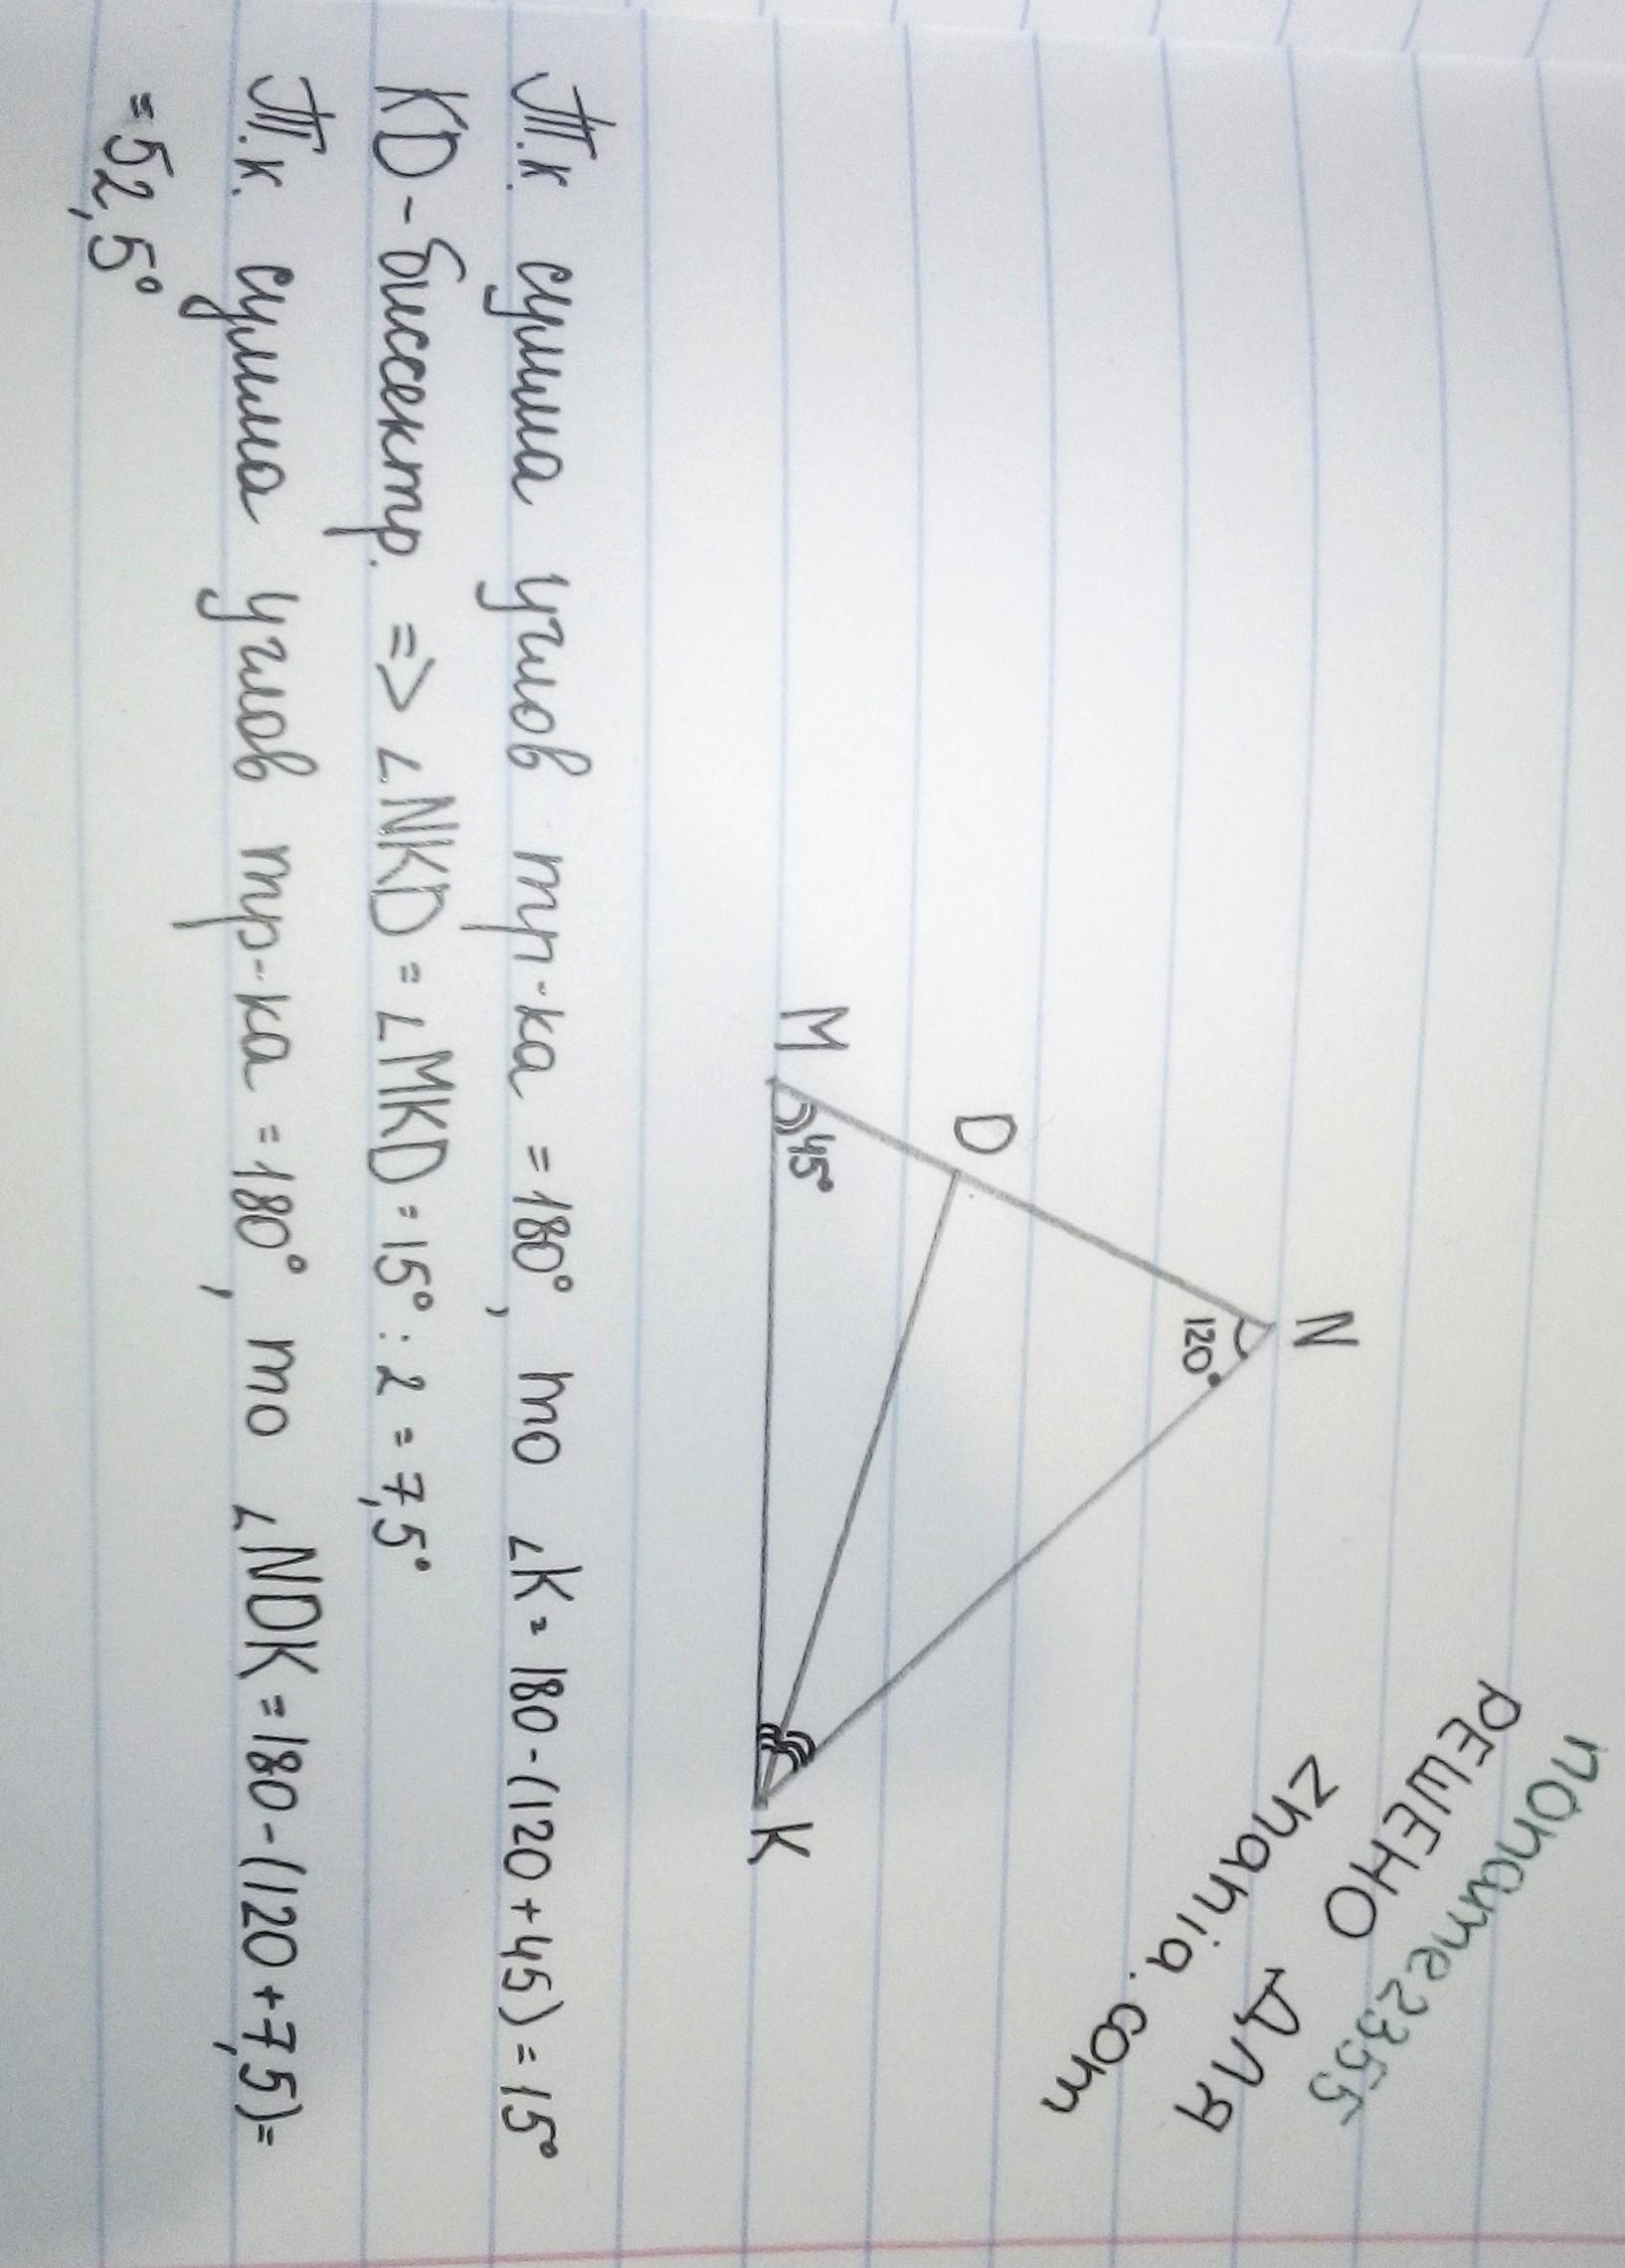 noname2355
РЕШЕНО ДЛЯ
znania.com
N
120°
D
M
45°
K
Т.к сумма углов тр-ка = 180°, то ∠K = 180-(120+45) = 15°
KD - биссектр. => ∠NKD = ∠MKD = 15° : 2 = 7,5°
Т.к. сумма углов тр-ка = 180°, то ∠NDK = 180-(120+7,5)=
= 52,5°